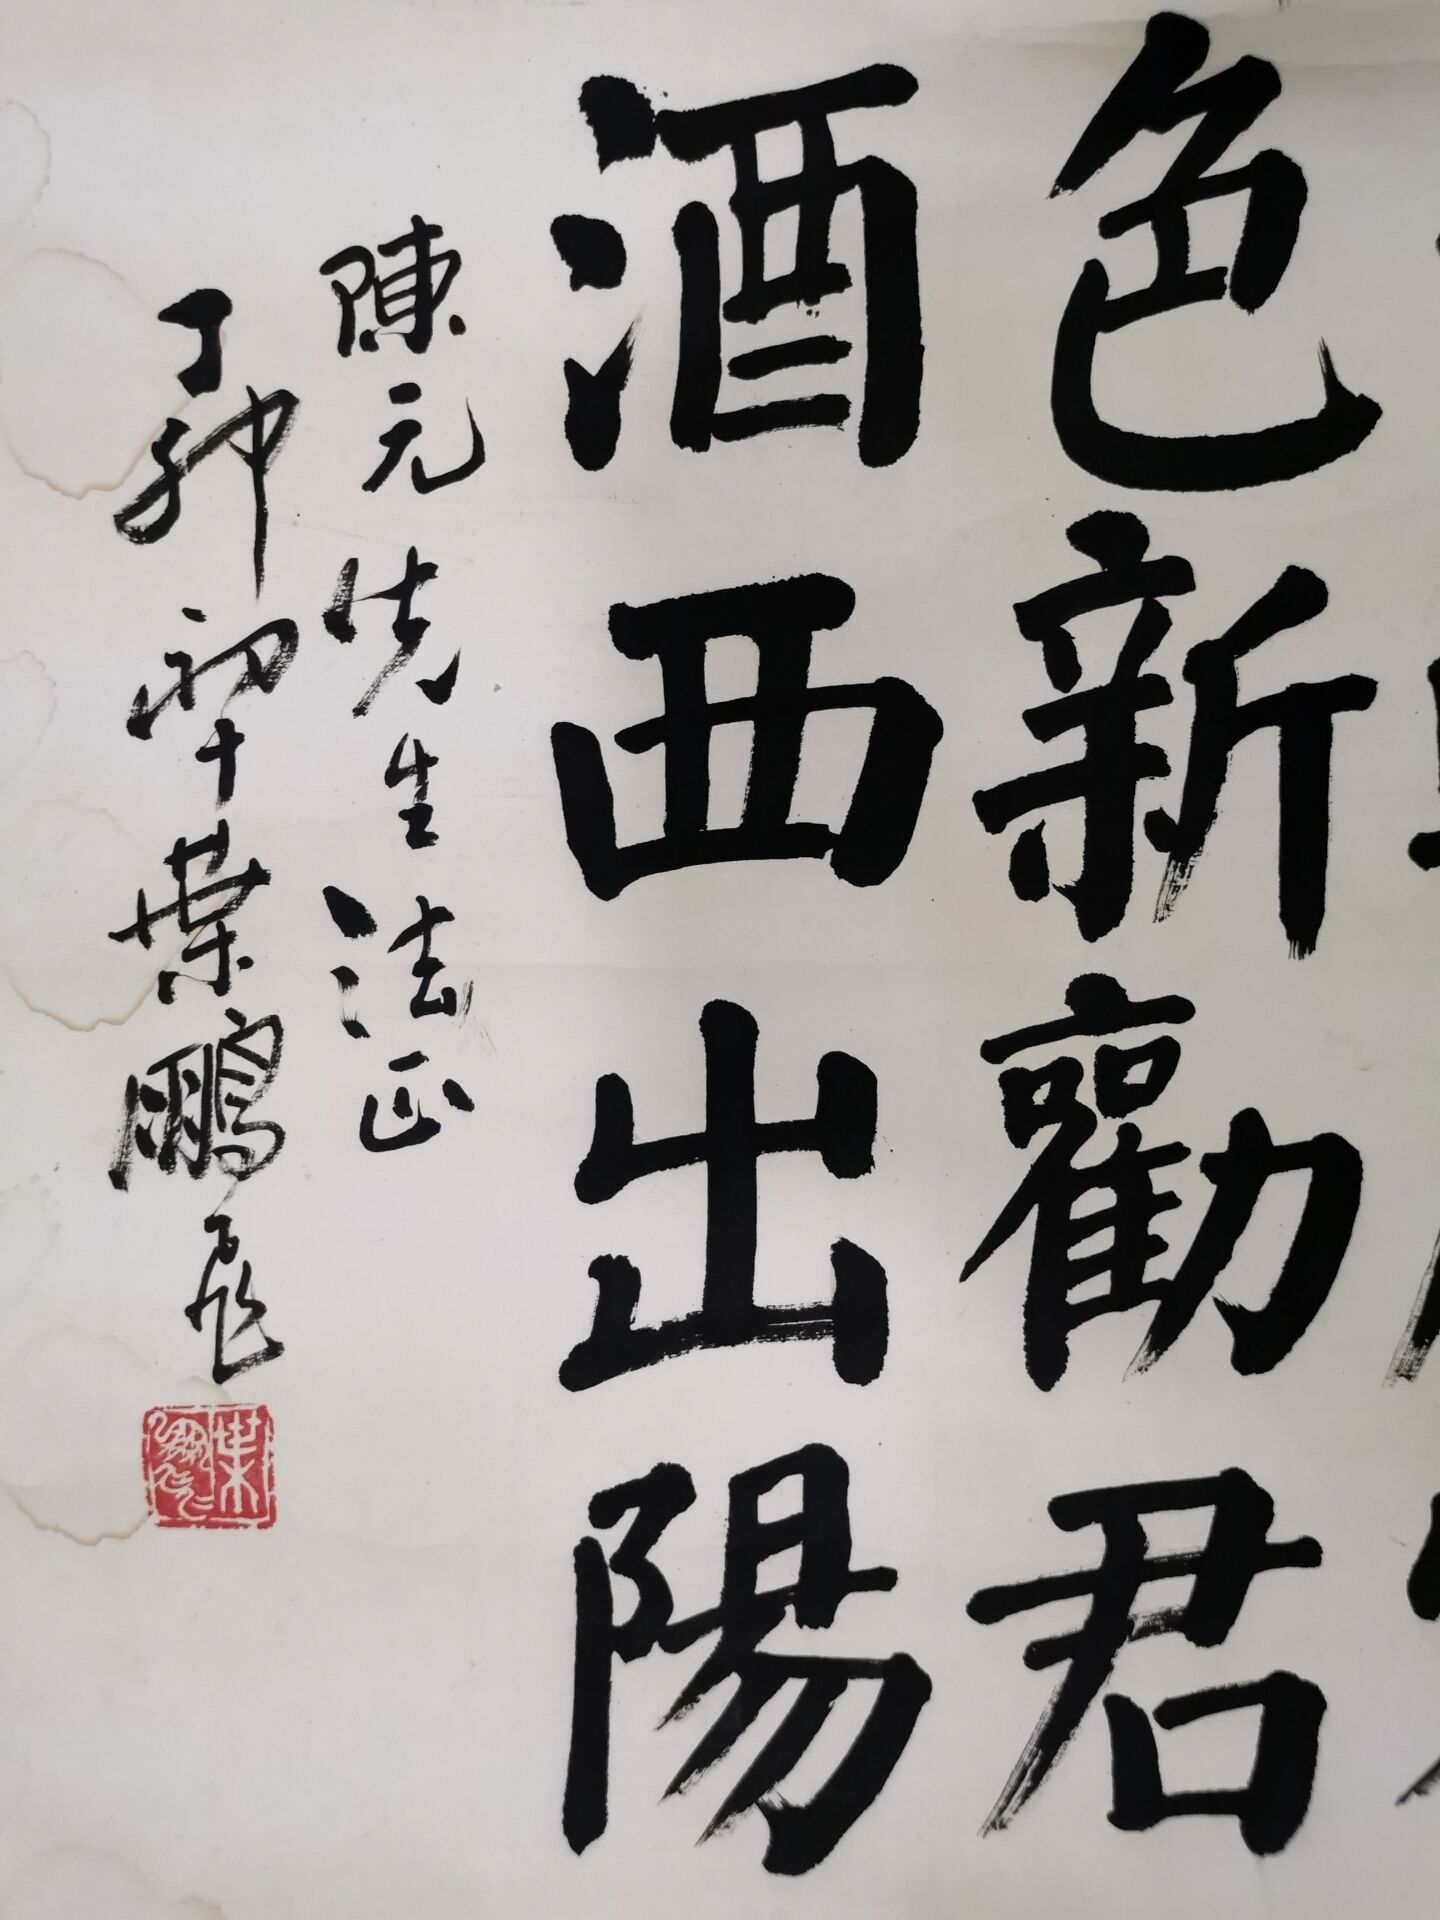 色新勸君
酒西出陽
陳元先生法正
丁卯初冬葉鵬飛
葉